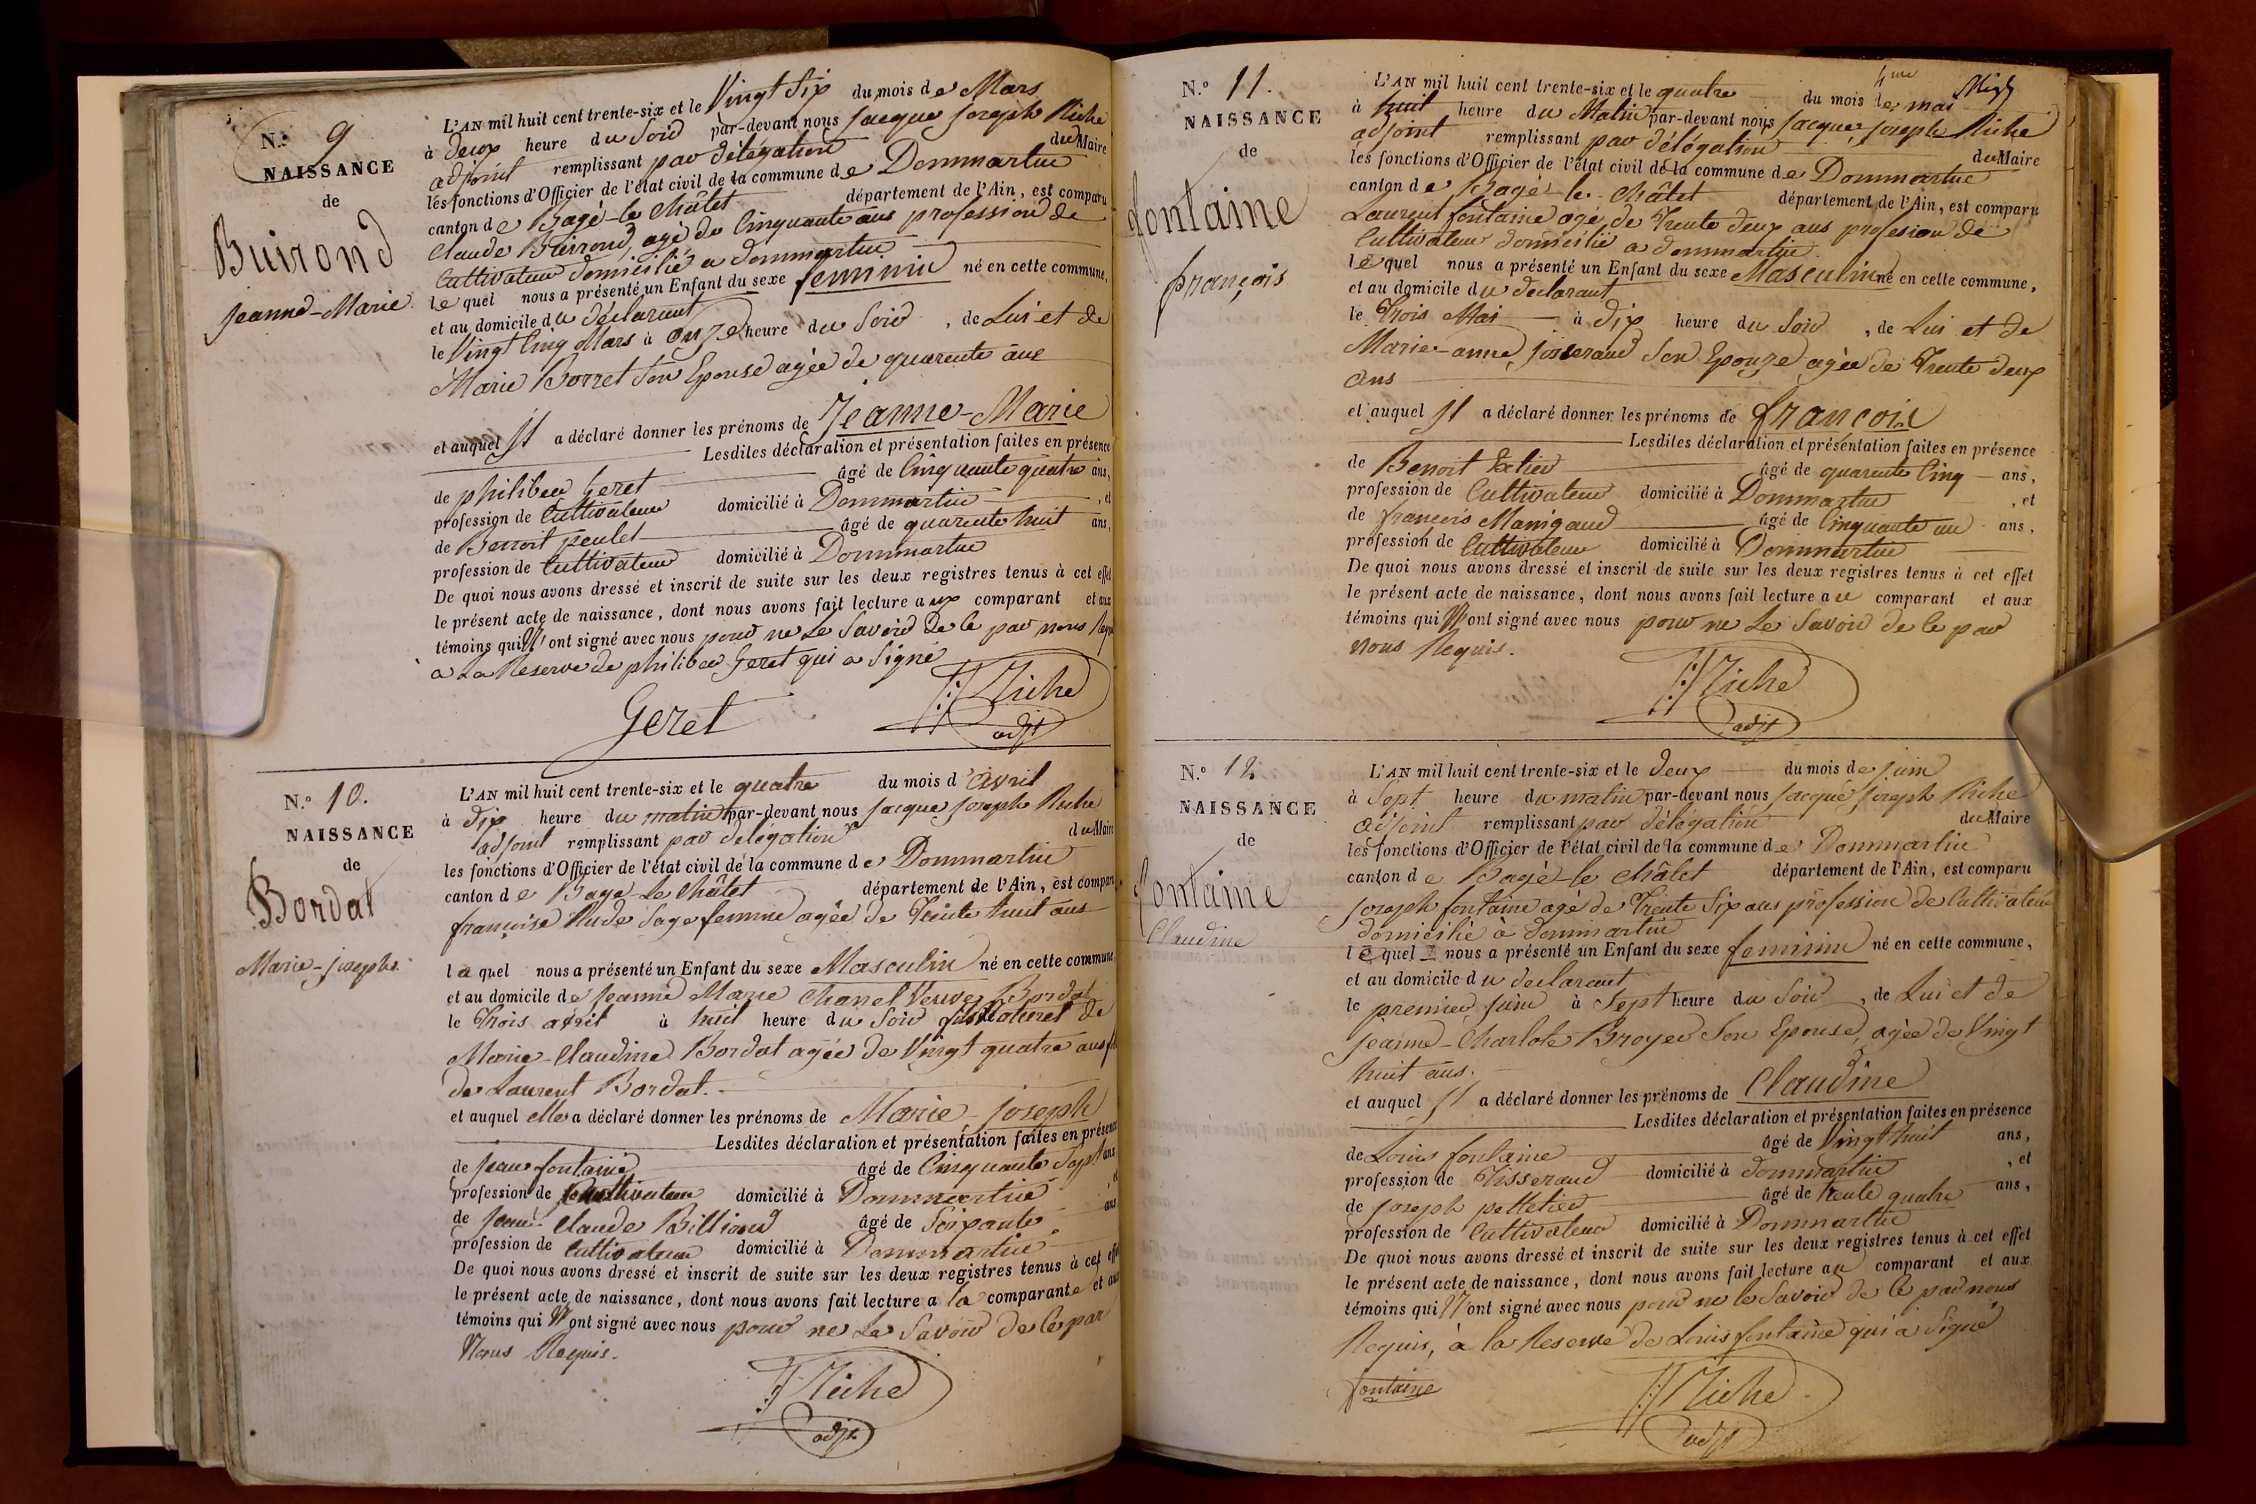 N.° 9
NAISSANCE
de
Buirond
Jeanne-Marie
L'AN mil huit cent trente-six et le Vingt Six du mois de Mars
à deux heure du Soir par-devant nous Jacque Joseph Riche
adjoint remplissant par délégation du Maire
les fonctions d'Officier de l'état civil de la commune de Dommartin
canton de Bagé-le Châtel département de l'Ain, est comparu
Claude Buirond, agé de Cinquante ans profession de
Cultivateur domicilié a dommartin
le quel nous a présenté un Enfant du sexe feminin né en cette commune,
et au domicile du déclarant
le Vingt Cinq Mars à onze heure du Soir, de Lui et de
Marie Borret Son Epouse agée de quarente ans
et auquel Il a déclaré donner les prénoms de Jeanne-Marie
Lesdites déclaration et présentation faites en présence
de philiber Geret âgé de Cinquante quatre ans,
profession de Cultivateur domicilié à Dommartin, et
de Benoit peulet âgé de quarente huit ans,
profession de Cultivateur domicilié à Dommartin
De quoi nous avons dressé et inscrit de suite sur les deux registres tenus à cet effet
le présent acte de naissance, dont nous avons fait lecture aux comparant et aux
témoins qui N'ont signé avec nous pour ne Le Savoir de Ce par nous Requi
a La Reserve de philiber Geret qui a Signé
Geret
JJ Riche
adjt
N.° 10.
NAISSANCE
de
Bordat
Marie-josephe.
L'AN mil huit cent trente-six et le quatre du mois d'avril
à dix heure du matin par-devant nous Jacque Joseph Riche
adjoint remplissant par delégation du Maire
les fonctions d'Officier de l'état civil de la commune de Dommartin
canton de Bagé-Le Châtel département de l'Ain, est comparu
françoise Rude Sage femme agée de Trente huit ans
la quel nous a présenté un Enfant du sexe Masculin né en cette commune
et au domicile de Jeanne Marie Chanel Veuve Bordat
le Trois avril à huit heure du Soir fils Naturel de
Marie-Claudine Bordat agée de Vingt quatre ans
de Laurent Bordat.
et auquel elle a déclaré donner les prénoms de Marie-Joseph
Lesdites déclaration et présentation faites en présence
de Jean fontaine âgé de Cinquante Sept ans
profession de Cultivateur domicilié à Dommartin et
de Jean-Claude Billioud âgé de Soixante ans
profession de Cultivateur domicilié à Dommartin
De quoi nous avons dressé et inscrit de suite sur les deux registres tenus à cet effet
le présent acte de naissance, dont nous avons fait lecture a la comparante et aux
témoins qui N'ont signé avec nous pour ne Le Savoir de Ce par
Nous Requis.
JJ Riche
adjt
N.° 11.
NAISSANCE
de
fontaine
françois
L'AN mil huit cent trente-six et le quatre du mois de mai
à huit heure du Matin par-devant nous Jacque Joseph Riche
adjoint remplissant par délégation du Maire
les fonctions d'Officier de l'état civil de la commune de Dommartin
canton de Bagé-le-Châtel département de l'Ain, est comparu
Laurent fontaine agé de Trente deux ans profesion de
Cultivateur domicilié a dommartin
le quel nous a présenté un Enfant du sexe Masculin né en cette commune,
et au domicile du declarant
le Trois Mai à dix heure du Soir, de Lui et de
Marie-anne Josserand Son Epouze agée de Trente deux
ans
et auquel Il a déclaré donner les prénoms de françois
Lesdites déclaration et présentation faites en présence
de Benoit âgé de quarente Cinq ans,
profession de Cultivateur domicilié à Dommartin, et
de françois Manigaud âgé de Cinquante un ans,
profession de Cultivateur domicilié à Dommartin
De quoi nous avons dressé et inscrit de suite sur les deux registres tenus à cet effet
le présent acte de naissance, dont nous avons fait lecture au comparant et aux
témoins qui N'ont signé avec nous pour ne Le Savoir de Ce par
nous Requis.
JJ Riche
adjt
N.° 12
NAISSANCE
de
fontaine
Claudine
L'AN mil huit cent trente-six et le deux du mois de juin
à Sept heure du matin par-devant nous Jacque Joseph Riche
adjoint remplissant par délégation du Maire
les fonctions d'Officier de l'état civil de la commune de Dommartin
canton de Bagé-le Châtel département de l'Ain, est comparu
Joseph fontaine agé de Trente Six ans profession de Cultivateur
domicilié à dommartin
le quel nous a présenté un Enfant du sexe feminin né en cette commune,
et au domicile du declarant
le premier Juin à Sept heure du Soir, de Lui et de
Jeanne-Charlote Broyer Son Epouse, agée de Vingt
huit ans.
et auquel Il a déclaré donner les prénoms de Claudine
Lesdites déclaration et présentation faites en présence
de Louis fontaine âgé de Vingt huit ans,
profession de Tisserand domicilié à dommartin, et
de Joseph pelletier âgé de trente quatre ans,
profession de Cultivateur domicilié à Dommartin
De quoi nous avons dressé et inscrit de suite sur les deux registres tenus à cet effet
le présent acte de naissance, dont nous avons fait lecture au comparant et aux
témoins qui N'ont signé avec nous pour ne le Savoir de Ce par nous
Requis, à la Reserve de Louis fontaine qui a Signé
fontaine
JJ Riche
adjt